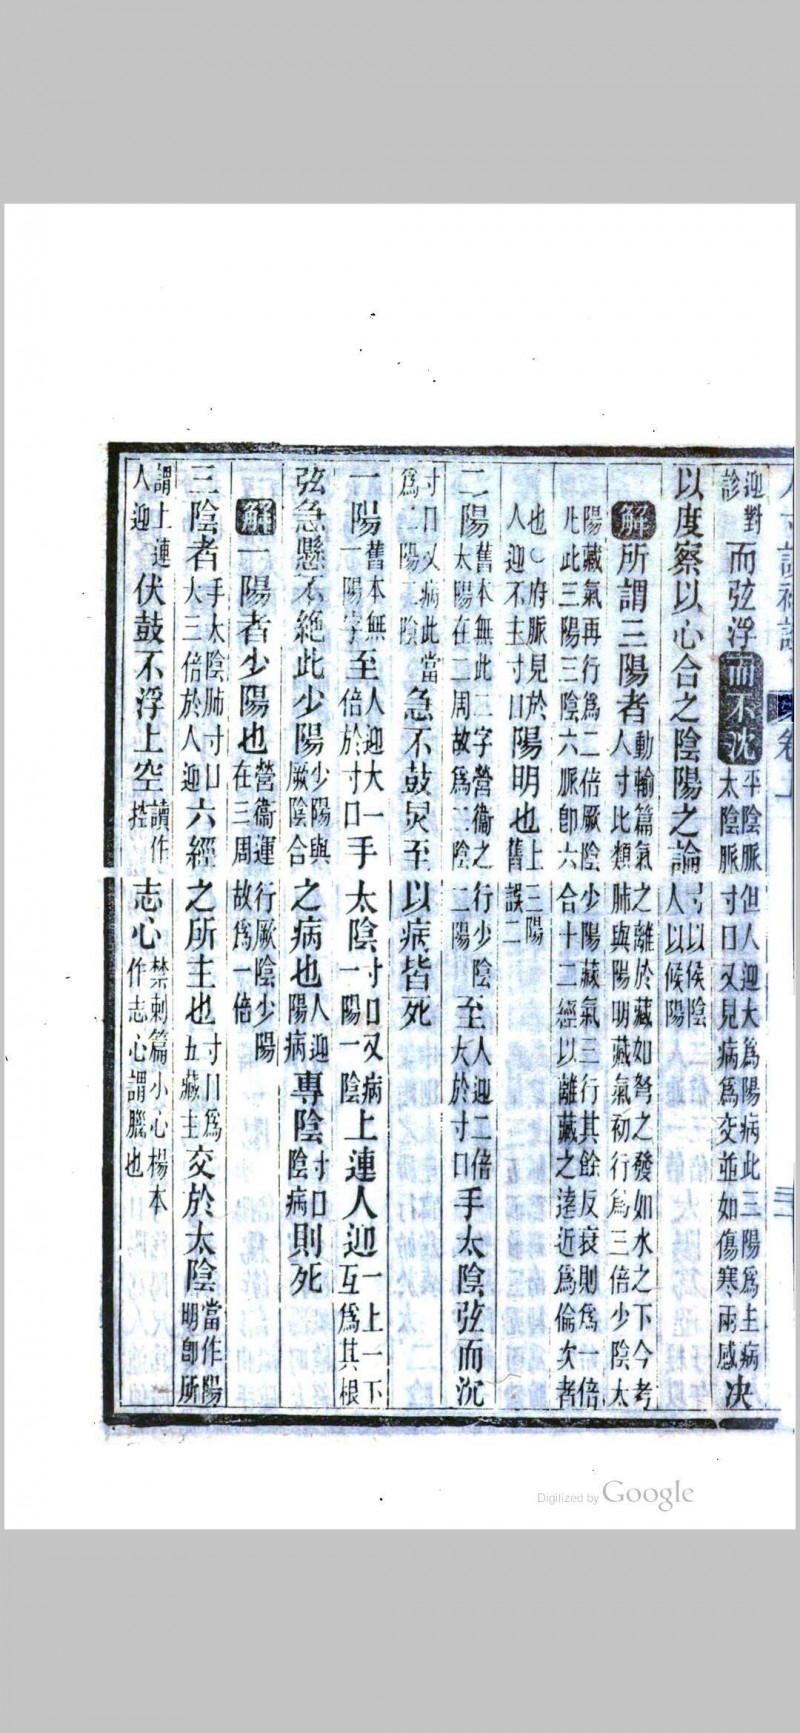 迎對
診
而弦浮而不沈
平陰脈但人迎大為陽病此三陽為主病
太陰脈寸口又見病為交並如傷寒兩感
決
以度察以心合之陰陽之論
寸以候陰
人以候陽
解所謂三陽者
動輸篇氣之離於藏如弩之發如水之下今考
人寸比類肺與陽明藏氣初行為三倍少陰太
陽藏氣再行為二倍厥陰少陽藏氣三行其餘反衰則為一倍
此三陽三陰六脈卽六合十二經以離藏之遠近為倫次者
也○府脈見於
人迎不主寸口
陽明也
上三陽
舊誤二
二陽
舊本無此二字營衞之行少陰
太陽在二周故為二陰二陽
至
人迎二倍
大於寸口
手太陰弦而沉
寸口又病此當
為二陽二陰
急不鼓炅至以病皆死
一陽
舊本無
一陽字
至
人迎大一
倍於寸口
手太陰
寸口又病
一陽一陰
上連人迎
一上一下
互為其根
弦急懸不絶此少陽
少陽與
厥陰合
之病也
人迎
陽病
專陰
寸口
陰病
則死
解一陽者少陽也
營衞運行厥陰少陽
在三周故為一倍
三陰者
手太陰肺寸口
大三倍於人迎
六經之所主也
寸口為
五藏主
交於太陰
當作陽
明卽所
謂上連
人迎
伏鼓不浮上空
讀作
控
志心
禁刺篇小心楊本
作志心謂臘也
Digitized by Google